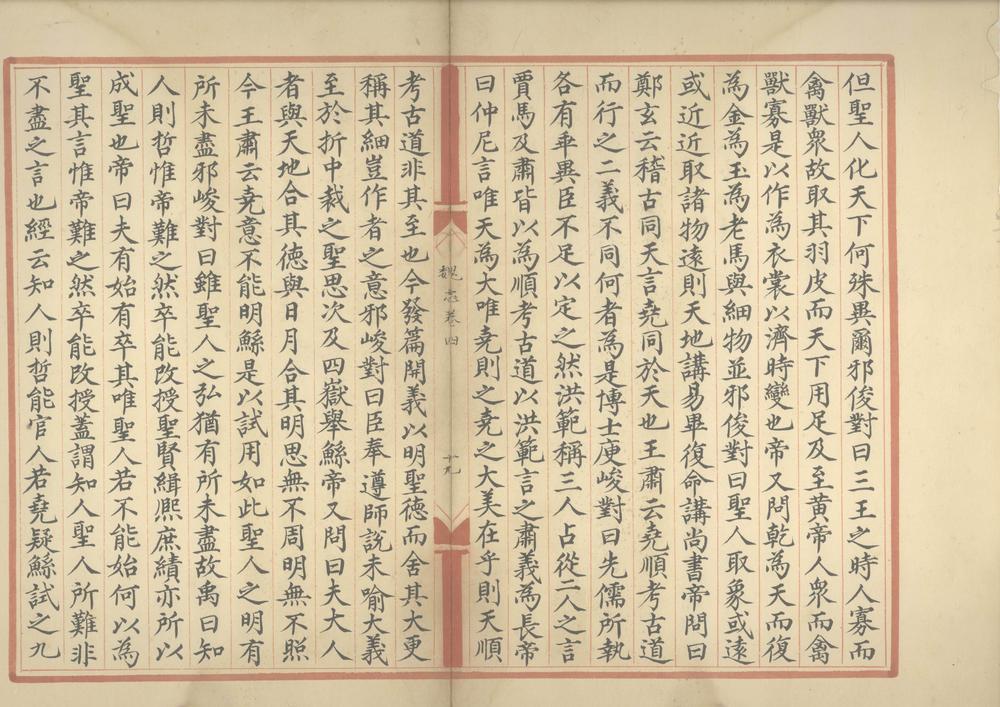 但聖人化天下何殊異爾邪俊對曰三王之時人寡而
禽獸衆故取其羽皮而天下用足及至黄帝人衆而禽
獸寡是以作為衣裳以濟時變也帝又問乾為天而復
為金為玉為老馬與細物並邪俊對曰聖人取象或遠
或近近取諸物遠則天地講易畢復命講尚書帝問曰
鄭玄云稽古同天言堯同於天也王肅云堯順考古道
而行之二義不同何者為是博士庾峻對曰先儒所執
各有乖異臣不足以定之然洪範稱三人占從二人之言
賈馬及肅皆以為順考古道以洪範言之肅義為長帝
曰仲尼言唯天為大唯堯則之堯之大美在乎則天順
魏志卷四
十九
考古道非其至也今發篇開義以明聖德而舍其大更
稱其細豈作者之意邪峻對曰臣奉遵師說未喻大義
至於折中裁之聖思次及四嶽舉鯀帝又問曰夫大人
者與天地合其德與日月合其明思無不周明無不照
今王肅云堯意不能明鯀是以試用如此聖人之明有
所未盡邪峻對曰雖聖人之弘猶有所未盡故禹曰知
人則哲惟帝難之然卒能改授聖賢緝熈庶績亦所以
成聖也帝曰夫有始有卒其唯聖人若不能始何以為
聖其言惟帝難之然卒能改授蓋謂知人聖人所難非
不盡之言也經云知人則哲能官人若堯疑鯀試之九